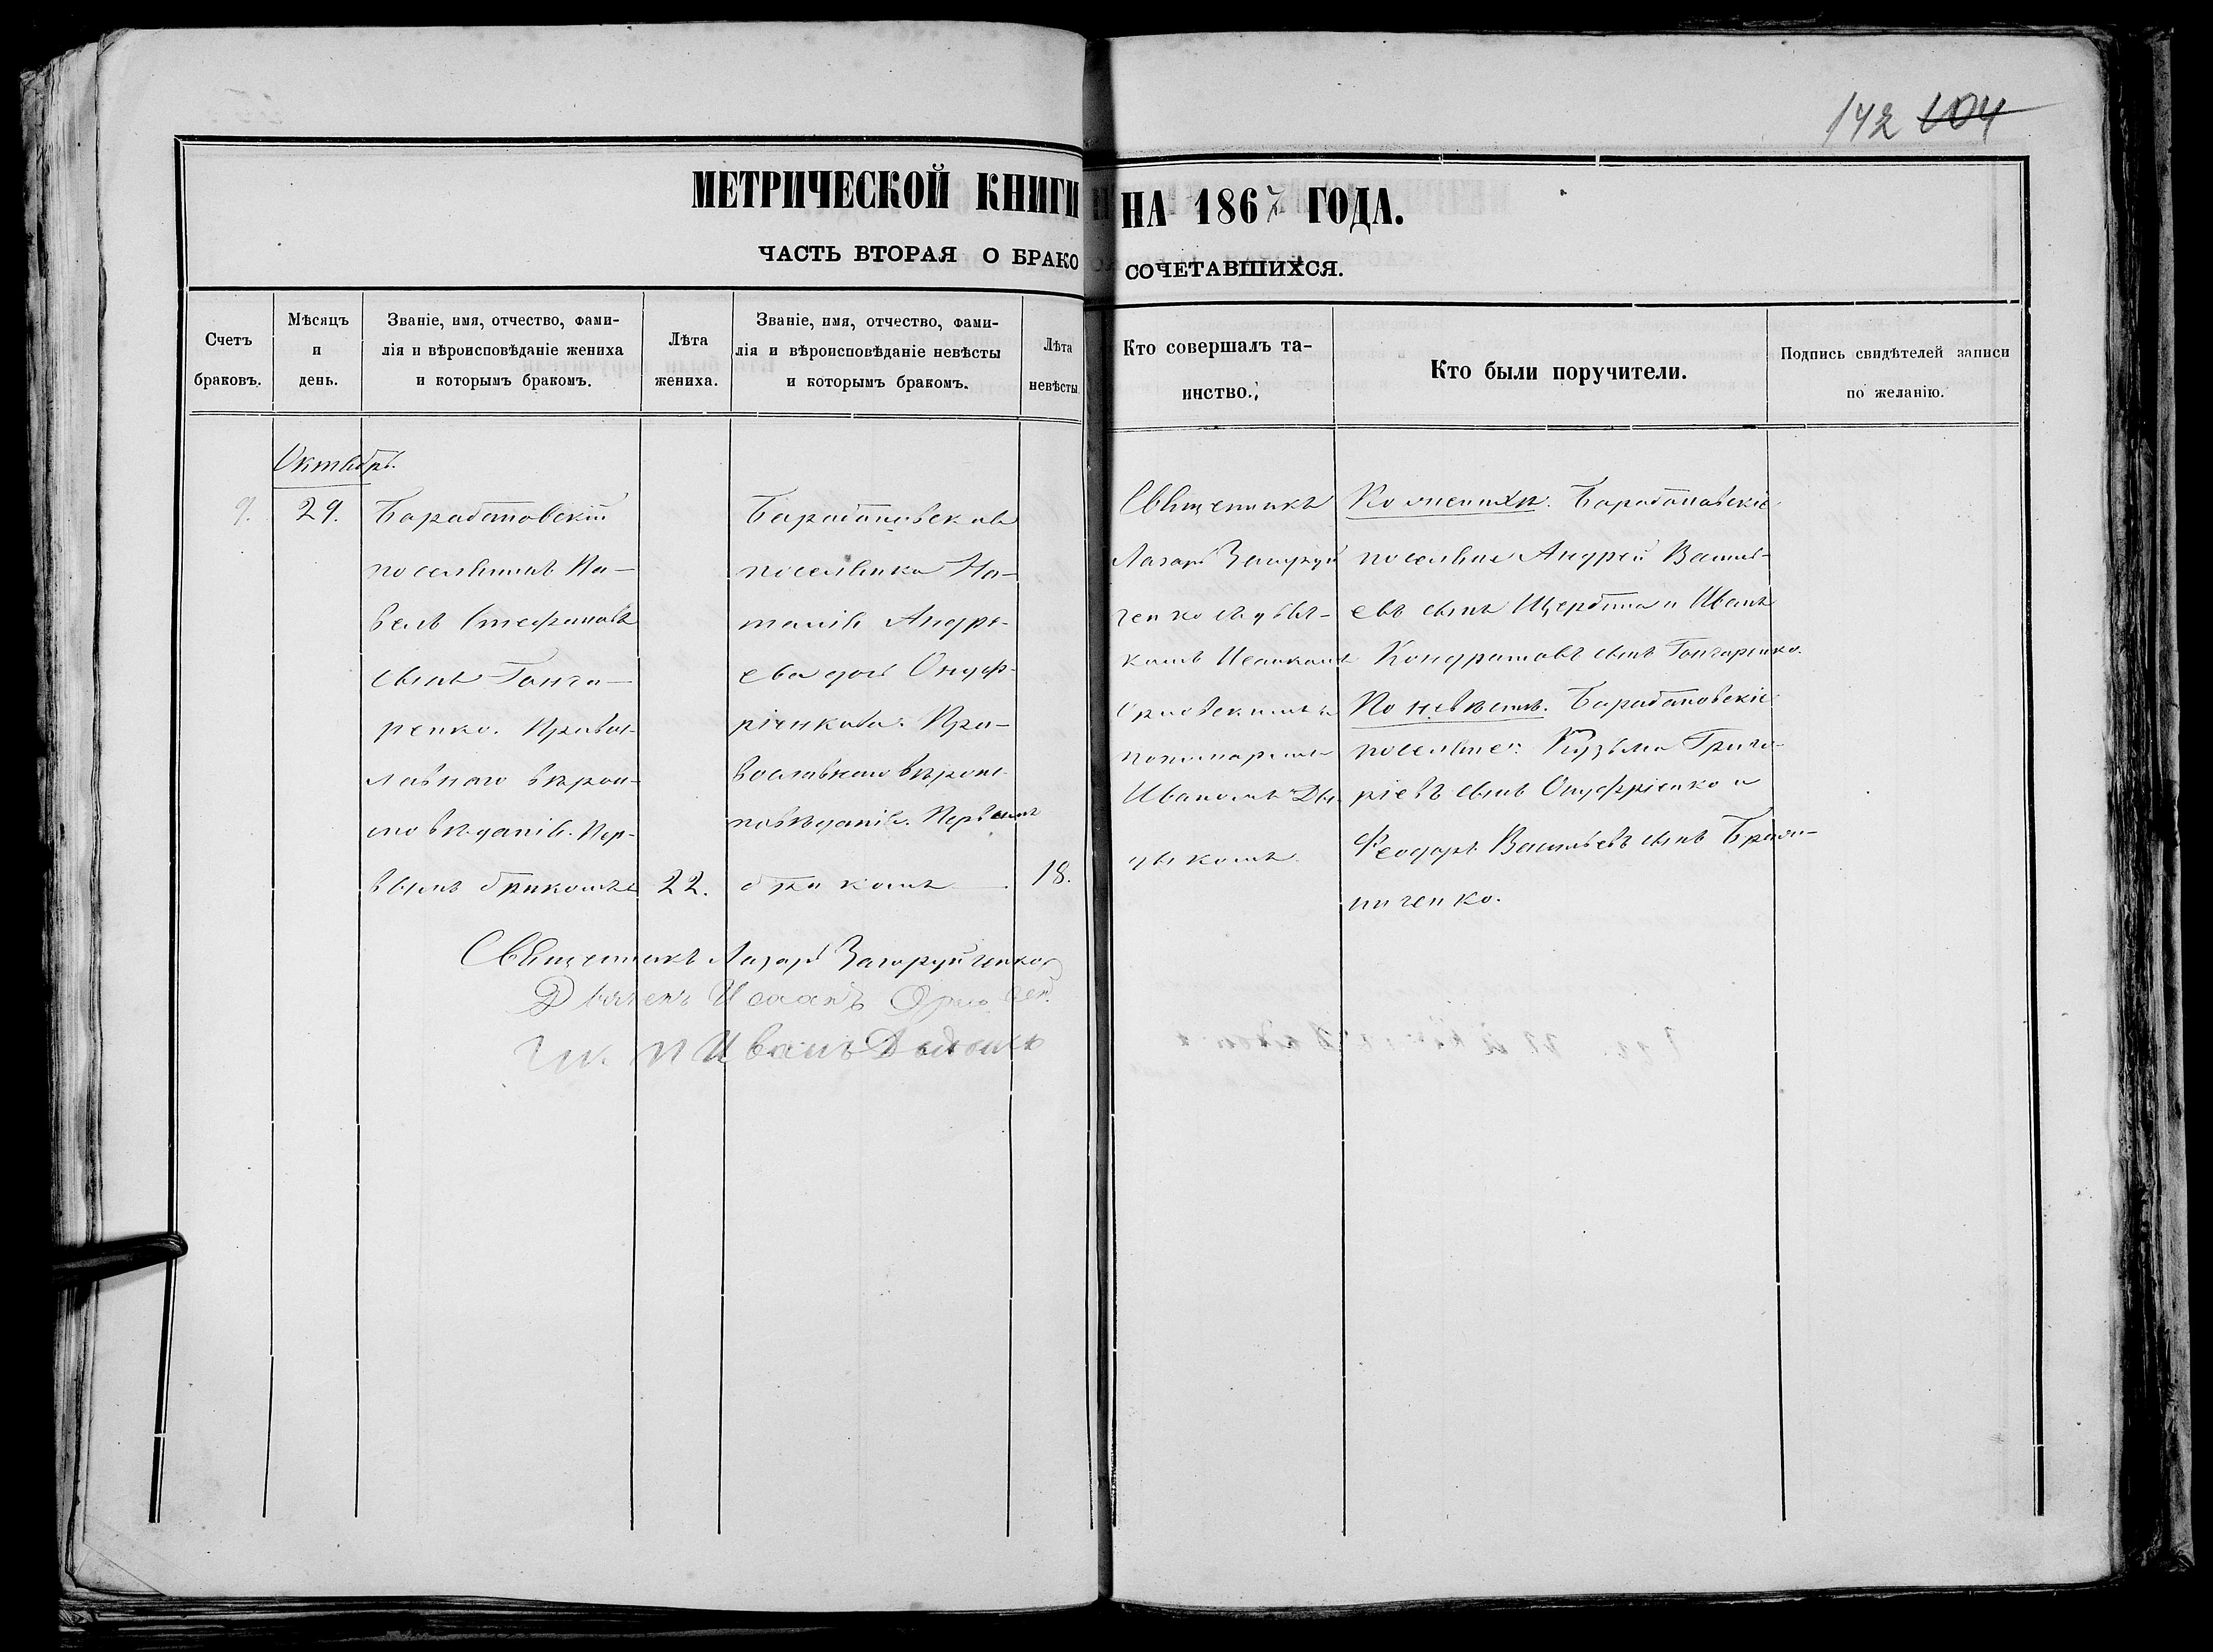 142 104
МЕТРИЧЕСКОЙ КНИГИ НА 1867 ГОДА.
ЧАСТЬ ВТОРАЯ О БРАКОСОЧЕТАВШИХСЯ.
Счетъ браковъ.
Мѣсяцъ и день.
Званіе, имя, отчество, фамилія и вѣроисповѣданіе жениха и которымъ бракомъ.
Лѣта жениха.
Званіе, имя, отчество, фамилія и вѣроисповѣданіе невѣсты и которымъ бракомъ.
Лѣта невѣсты.
Кто совершалъ таинство.
Кто были поручители.
Подпись свидѣтелей записи по желанію.
Октябрь.
9.
29.
Барабановскій
поселянинъ Па-
велъ Стефановъ
сынъ Гонча-
ренко. Правос-
лавнаго вѣрои-
сповѣданія. Пер-
вымъ бракомъ
22.
Барабановская
поселянка На-
талія Андре-
ева дочь Онуф-
ріенкова. Пра-
вославнаго вѣрои-
повѣданія. Первымъ
бракомъ
18.
Священникъ
Лазарь Загоруй
ченко съ дья-
комъ Исаакомъ
Орловскимъ и
пономаремъ
Иваномъ Дья-
дькомъ.
По женихѣ. Барабановскіе
поселяне Андрей Василь-
евъ сынъ Щербина и Иванъ
Кондратовъ сынъ Гончаренко.
По невѣстѣ. Барабановскіе
поселяне: Кузьма Григо-
ріевъ сынъ Онуфріенко и
Феодоръ Васильевъ сынъ
ниченко.
Священникъ Лазарь Загоруйченко
Дьячекъ Исаакъ
Иванъ